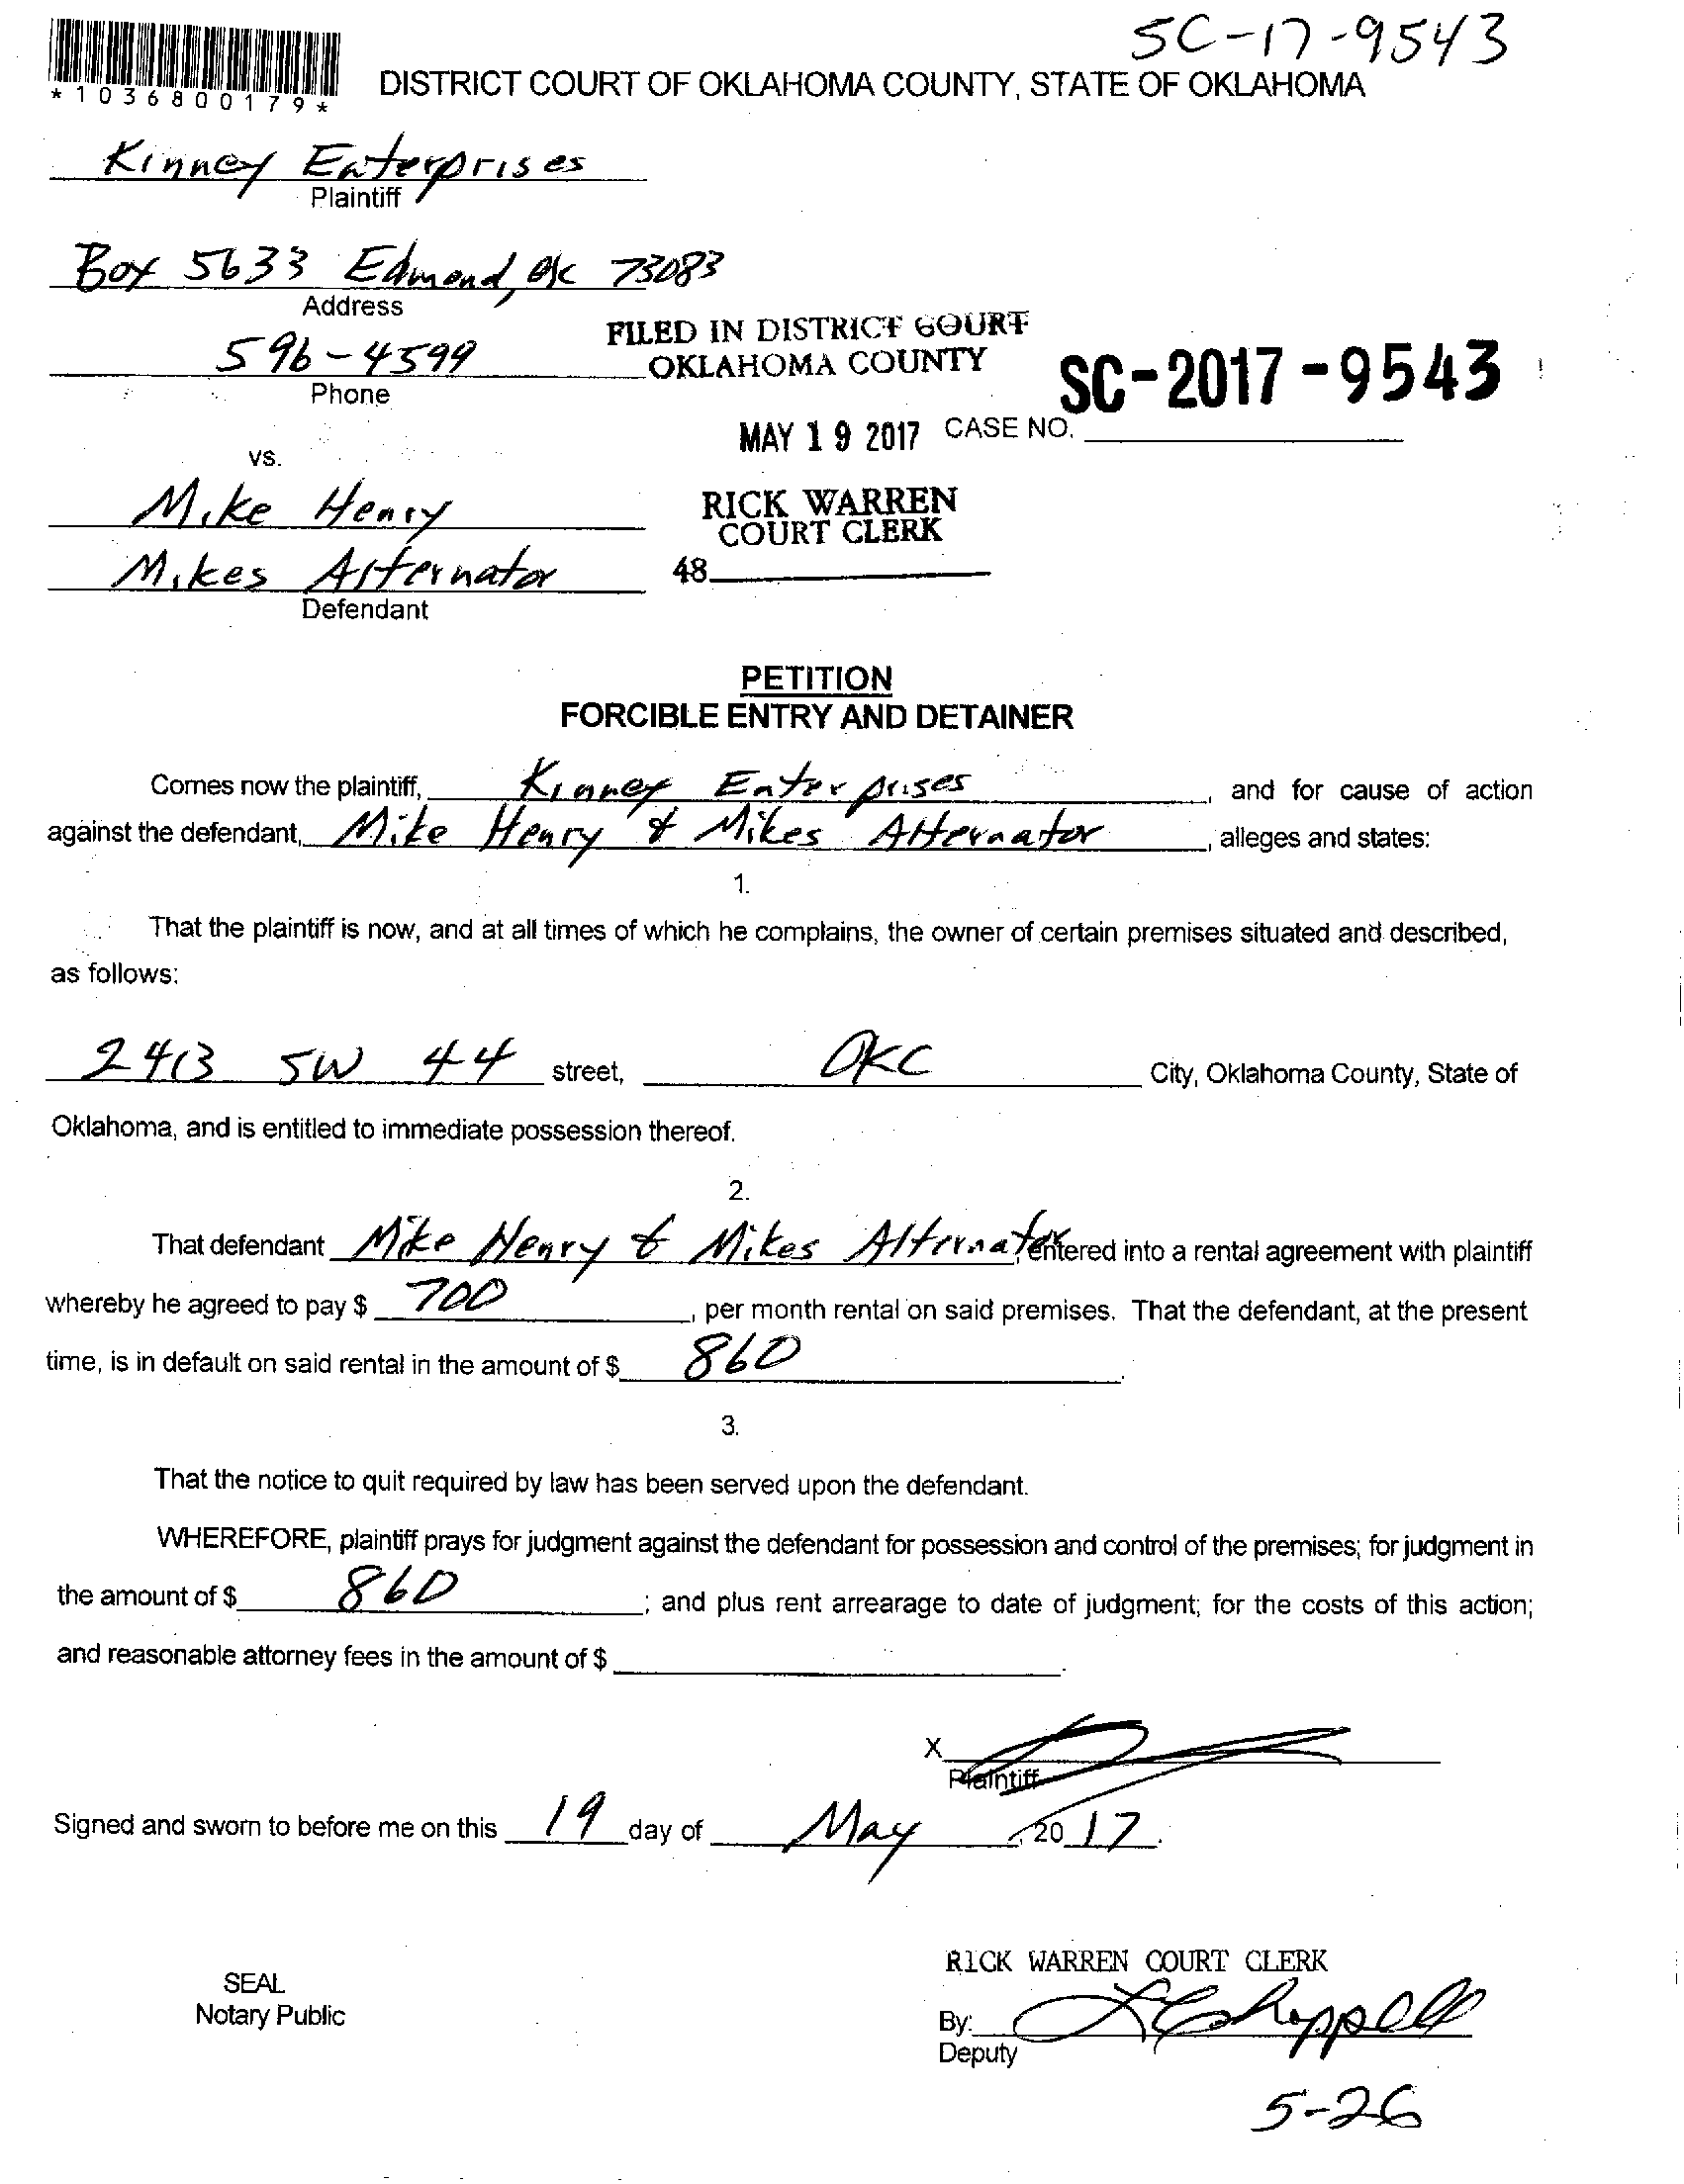 SC-17-9543
*1036800179*
DISTRICT COURT OF OKLAHOMA COUNTY, STATE OF OKLAHOMA
Kinney Enterprises
Plaintiff
Box 5633 Edmond, OK 73083
Address
596-4599
Phone
FILED IN DISTRICT COURT
OKLAHOMA COUNTY
SC-2017-9543
MAY 19 2017 CASE NO.
vs.
Mike Henry
RICK WARREN
COURT CLERK
Mikes Alternator
48
Defendant
PETITION
FORCIBLE ENTRY AND DETAINER
Comes now the plaintiff, Kinney Enterprises, and for cause of action
against the defendant, Mike Henry & Mikes Alternator, alleges and states:
1.
That the plaintiff is now, and at all times of which he complains, the owner of certain premises situated and described,
as follows:
2413 SW 44 street, OKC City, Oklahoma County, State of
Oklahoma, and is entitled to immediate possession thereof.
2.
That defendant Mike Henry & Mikes Alternator, entered into a rental agreement with plaintiff
whereby he agreed to pay $ 700, per month rental on said premises. That the defendant, at the present
time, is in default on said rental in the amount of $ 860.
3.
That the notice to quit required by law has been served upon the defendant.
WHEREFORE, plaintiff prays for judgment against the defendant for possession and control of the premises; for judgment in
the amount of $ 860; and plus rent arrearage to date of judgment; for the costs of this action;
and reasonable attorney fees in the amount of $.
X
Plaintiff
Signed and sworn to before me on this 19 day of May, 2017.
RICK WARREN COURT CLERK
SEAL
Notary Public
By:
Deputy
5-26